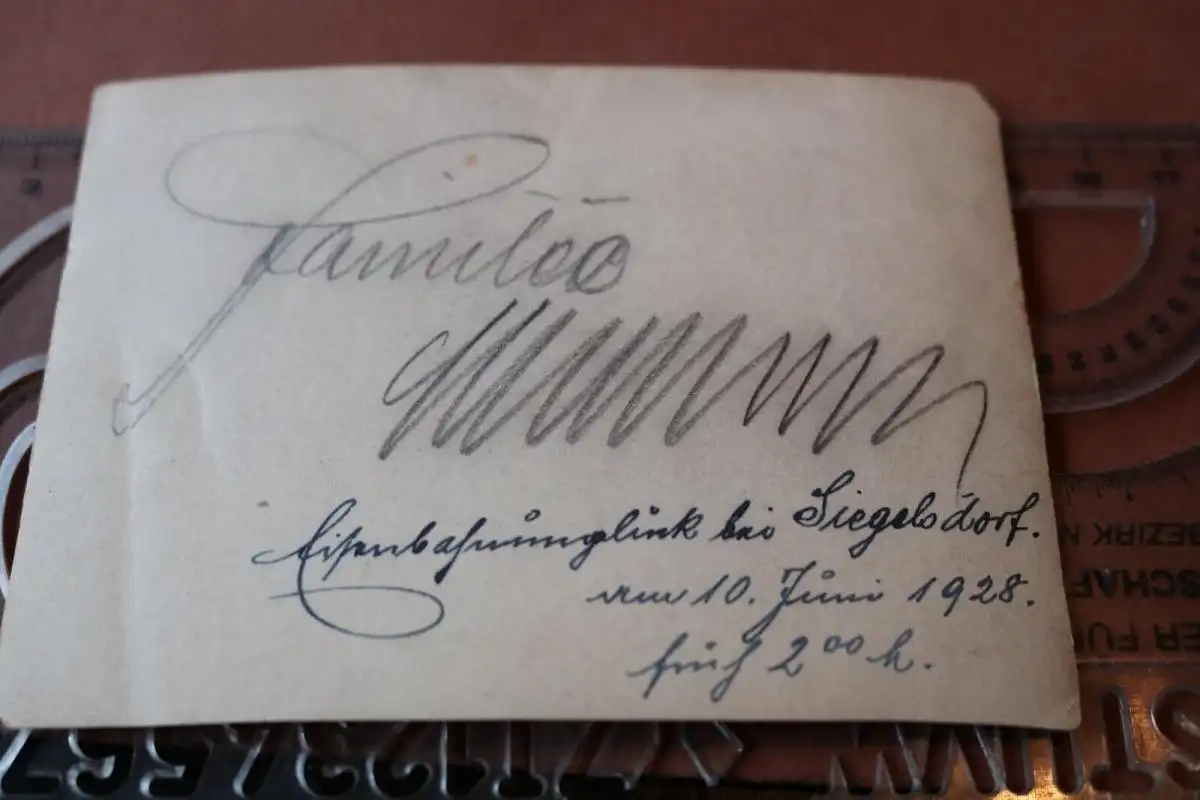 Familie
Eisenbahnunglück bei Siegelsdorf.
am 10. Juni 1928.
früh 2⁰⁰ h.
BEZIRK N
SCHAF
ER FÜR
STHNW